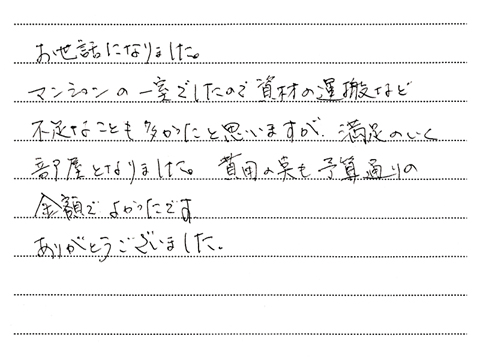 お世話になりました。
マンションの一室でしたので資材の運搬など
不足なことも多かったと思いますが、満足のいく
部屋となりました。費用の実も予算通りの
金額でよかったです
ありがとうございました。